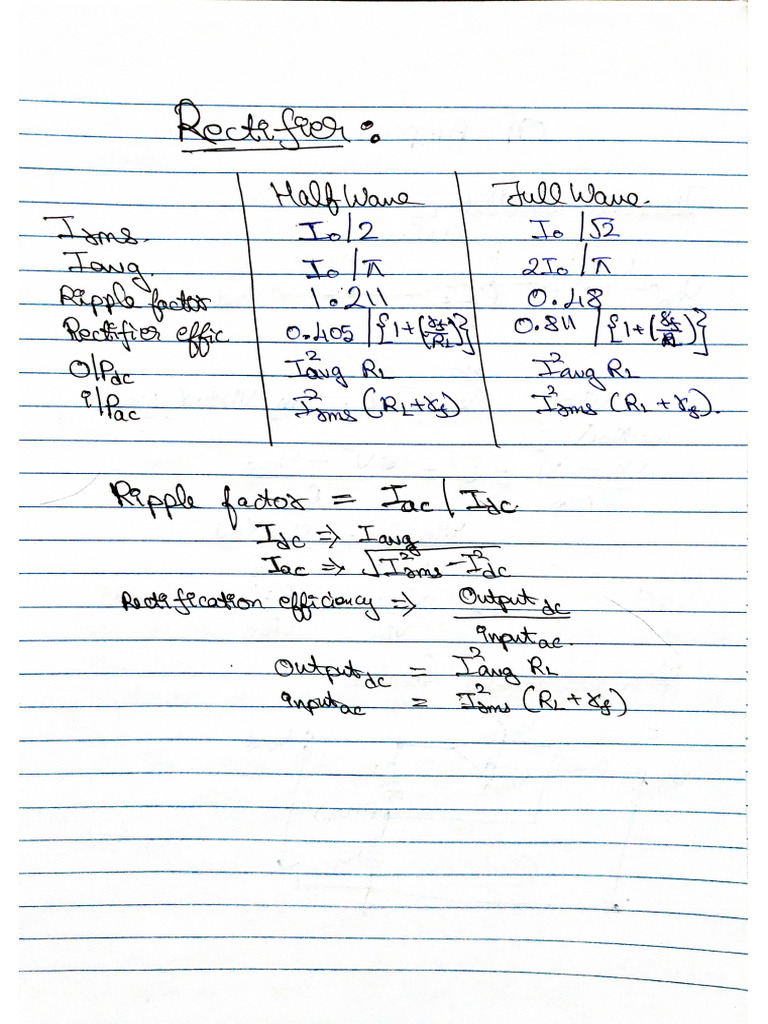 Rectifier :
Half Wave Full Wave.
Irms. I₀/2 I₀/√2
Iavg. I₀/π 2I₀/π
Ripple factor 1.211 0.48
Rectifier effic 0.405/{1+(rf/RL)} 0.811/{1+(rf/RL)}
O/Pdc I²avg RL I²avg RL
i/Pac I²rms (RL+rf) I²rms (RL+rf).
Ripple factor = Iac/Idc.
Idc ⇒ Iavg
Iac ⇒ √I²rms − I²dc
Rectification efficiency ⇒ Outputdc
inputac.
Outputdc = I²avg RL
inputac = I²rms (RL+rf)